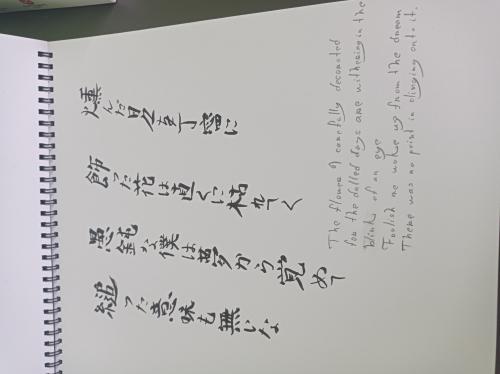 燻んだ日を丁寧に
飾った花は直ぐに枯れてく
愚鈍な僕は夢から覚めて
縋った意味も無いな
The flower I carefully decorated
for the dulled days are withering in the
blink of an eye
Foolish me woke up from the dream
There was no point in clinging onto it.